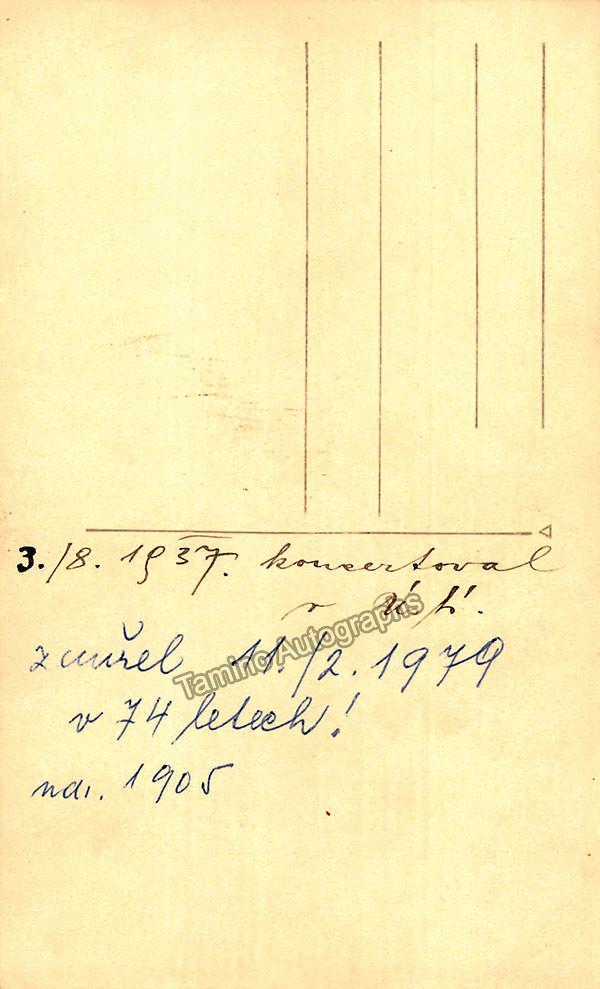 3./8. 1937. koncertoval
v
Tamino Autographs
zemřel 11./2. 1979
v 74 letech!
nar. 1905